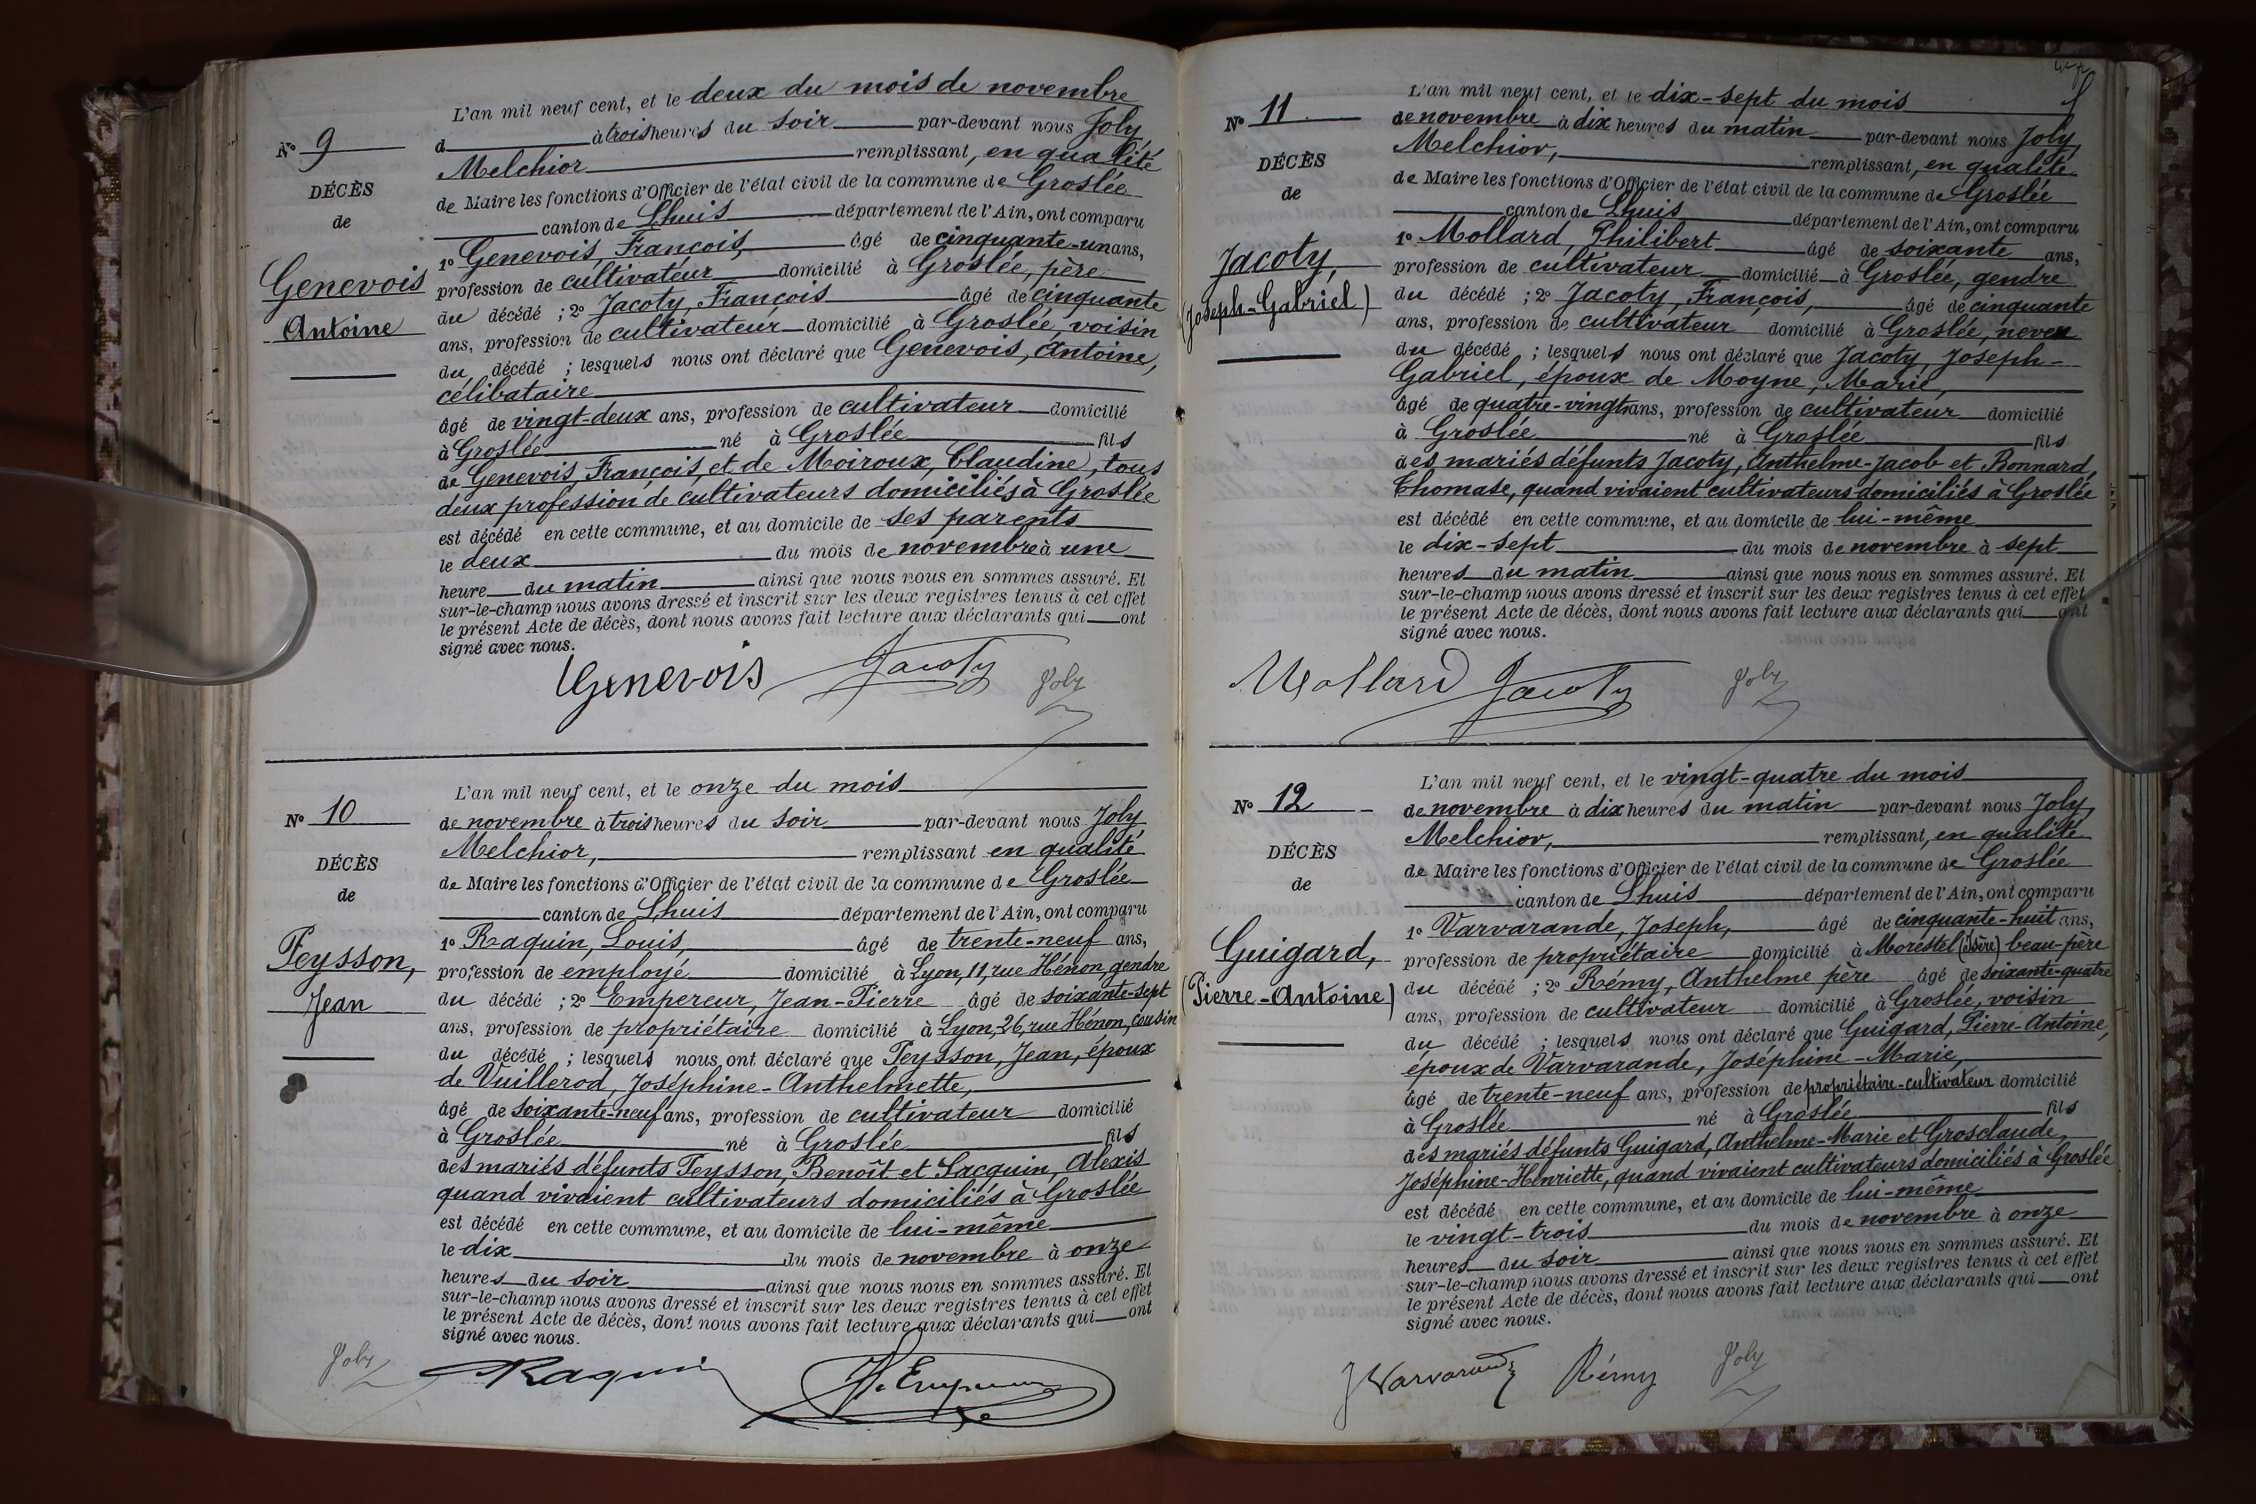 Nº 9
DÉCÈS
de
Genevois
Antoine
L'an mil neuf cent, et le deux du mois de novembre
d à trois heures du soir par-devant nous Joly,
Melchior remplissant, en qualité
de Maire les fonctions d'Officier de l'état civil de la commune de Groslée
canton de Lhuis département de l'Ain, ont comparu
1º Genevois, François, âgé de cinquante-un ans,
profession de cultivateur domicilié à Groslée, père
du décédé ; 2º Jacoty, François âgé de cinquante
ans, profession de cultivateur domicilié à Groslée, voisin
du décédé ; lesquels nous ont déclaré que Genevois, Antoine,
célibataire
âgé de vingt-deux ans, profession de cultivateur domicilié
à Groslée né à Groslée fils
de Genevois, François, et de Moiroux, Claudine, tous
deux profession de cultivateurs domiciliés à Groslée
est décédé en cette commune, et au domicile de ses parents
le deux du mois de novembre à une
heure du matin ainsi que nous nous en sommes assuré. Et
sur-le-champ nous avons dressé et inscrit sur les deux registres tenus à cet effet
le présent Acte de décès, dont nous avons fait lecture aux déclarants qui ont
signé avec nous.
Genevois Jacoty Joly
Nº 10
DÉCÈS
de
Peysson,
Jean
L'an mil neuf cent, et le onze du mois
de novembre à trois heures du soir par-devant nous Joly
Melchior, remplissant en qualité
de Maire les fonctions d'Officier de l'état civil de la commune de Groslée
canton de Lhuis département de l'Ain, ont comparu
1º Raquin, Louis, âgé de trente-neuf ans,
profession de employé domicilié à Lyon, 11, rue Hénon, gendre
du décédé ; 2º Empereur, Jean-Pierre âgé de soixante-sept
ans, profession de propriétaire domicilié à Lyon, 26, rue Hénon, cousin
du décédé ; lesquels nous ont déclaré que Peysson, Jean, époux
de Vuillerod, Joséphine-Anthelmette,
âgé de soixante-neuf ans, profession de cultivateur domicilié
à Groslée né à Groslée fils
des mariés défunts Peysson, Benoît et Sacquin, Alexis
quand vivaient cultivateurs domiciliés à Groslée
est décédé en cette commune, et au domicile de lui-même
le dix du mois de novembre à onze
heures du soir ainsi que nous nous en sommes assuré. Et
sur-le-champ nous avons dressé et inscrit sur les deux registres tenus à cet effet
le présent Acte de décès, dont nous avons fait lecture aux déclarants qui ont
signé avec nous.
Joly Raquin Empereur
Nº 11
DÉCÈS
de
Jacoty,
(Joseph-Gabriel)
L'an mil neuf cent, et le dix-sept du mois
de novembre à dix heures du matin par-devant nous Joly,
Melchior, remplissant, en qualité
de Maire les fonctions d'Officier de l'état civil de la commune de Groslée
canton de Lhuis département de l'Ain, ont comparu
1º Mollard, Philibert âgé de soixante ans,
profession de cultivateur domicilié à Groslée, gendre
du décédé ; 2º Jacoty, François, âgé de cinquante
ans, profession de cultivateur domicilié à Groslée, neveu
du décédé ; lesquels nous ont déclaré que Jacoty, Joseph-
Gabriel, époux de Moyne, Marie,
âgé de quatre-vingts ans, profession de cultivateur domicilié
à Groslée né à Groslée fils
des mariés défunts Jacoty, Anthelme-Jacob et Bonnard,
Thomase, quand vivaient cultivateurs domiciliés à Groslée
est décédé en cette commune, et au domicile de lui-même
le dix-sept du mois de novembre à sept
heures du matin ainsi que nous nous en sommes assuré. Et
sur-le-champ nous avons dressé et inscrit sur les deux registres tenus à cet effet
le présent Acte de décès, dont nous avons fait lecture aux déclarants qui ont
signé avec nous.
Mollard Jacoty Joly
Nº 12
DÉCÈS
de
Guigard,
(Pierre-Antoine)
L'an mil neuf cent, et le vingt-quatre du mois
de novembre à dix heures du matin par-devant nous Joly,
Melchior, remplissant, en qualité
de Maire les fonctions d'Officier de l'état civil de la commune de Groslée
canton de Lhuis département de l'Ain, ont comparu
1º Varvarande, Joseph, âgé de cinquante-huit ans,
profession de propriétaire domicilié à Morestel (Isère) beau-père
du décédé ; 2º Rémy, Anthelme père âgé de soixante-quatre
ans, profession de cultivateur domicilié à Groslée, voisin
du décédé ; lesquels nous ont déclaré que Guigard, Pierre-Antoine,
époux de Varvarande, Joséphine-Marie,
âgé de trente-neuf ans, profession de propriétaire-cultivateur domicilié
à Groslée né à Groslée fils
des mariés défunts Guigard, Anthelme-Marie et Grosclaude,
Joséphine-Henriette, quand vivaient cultivateurs domiciliés à Groslée
est décédé en cette commune, et au domicile de lui-même
le vingt-trois du mois de novembre à onze
heures du soir ainsi que nous nous en sommes assuré. Et
sur-le-champ nous avons dressé et inscrit sur les deux registres tenus à cet effet
le présent Acte de décès, dont nous avons fait lecture aux déclarants qui ont
signé avec nous.
J Varvarande Rémy Joly